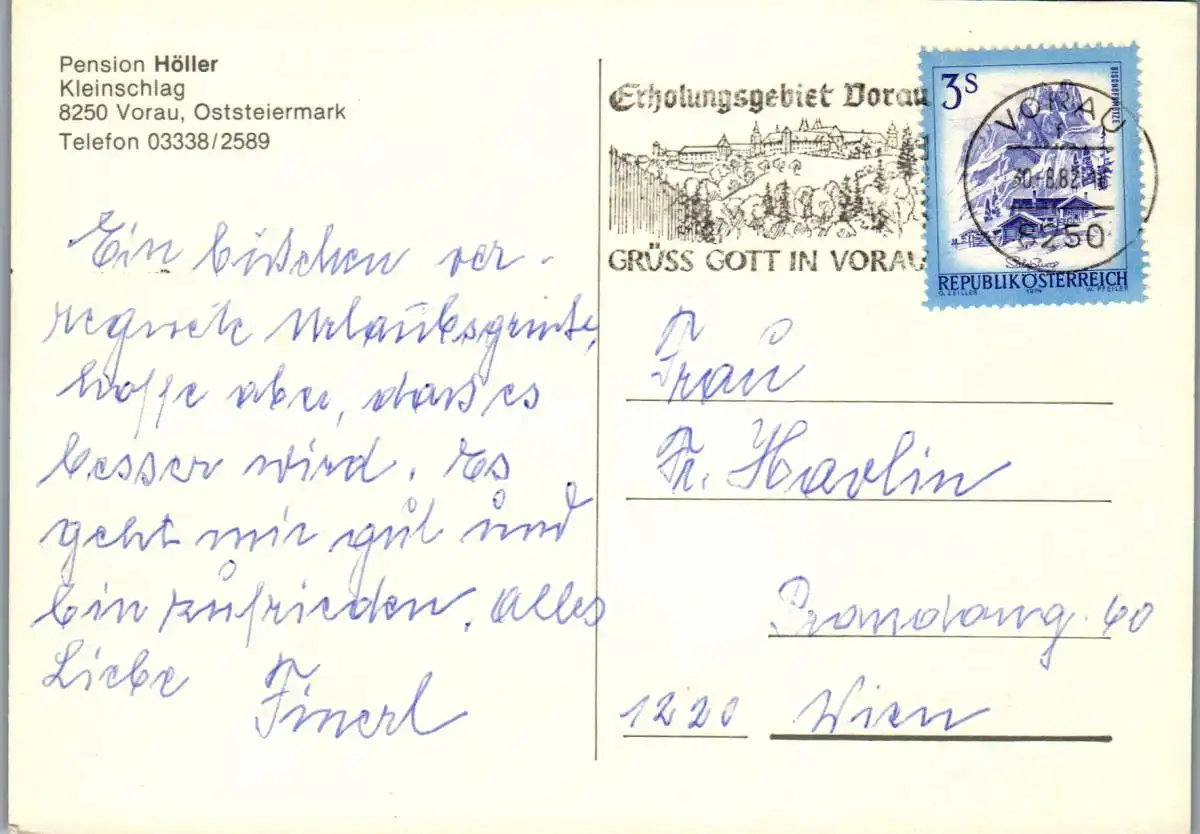 Pension Höller
Kleinschlag
8250 Vorau, Oststeiermark
Telefon 03338/2589
Ein bißchen ver-
regnete Urlaubsgrüße,
hoffe aber, daß es
besser wird. Es
geht mir gut und
bin zufrieden. Alles
Liebe Finerl
Erholungsgebiet Vorau
GRÜSS GOTT IN VORAU
3S
BISCHOFSMÜTZE
VORAU
30.-8.82
8250
REPUBLIK ÖSTERREICH
G. ZEILLER 1974 W. PFEILER
Frau
Fr. Havlin
60
1220 Wien